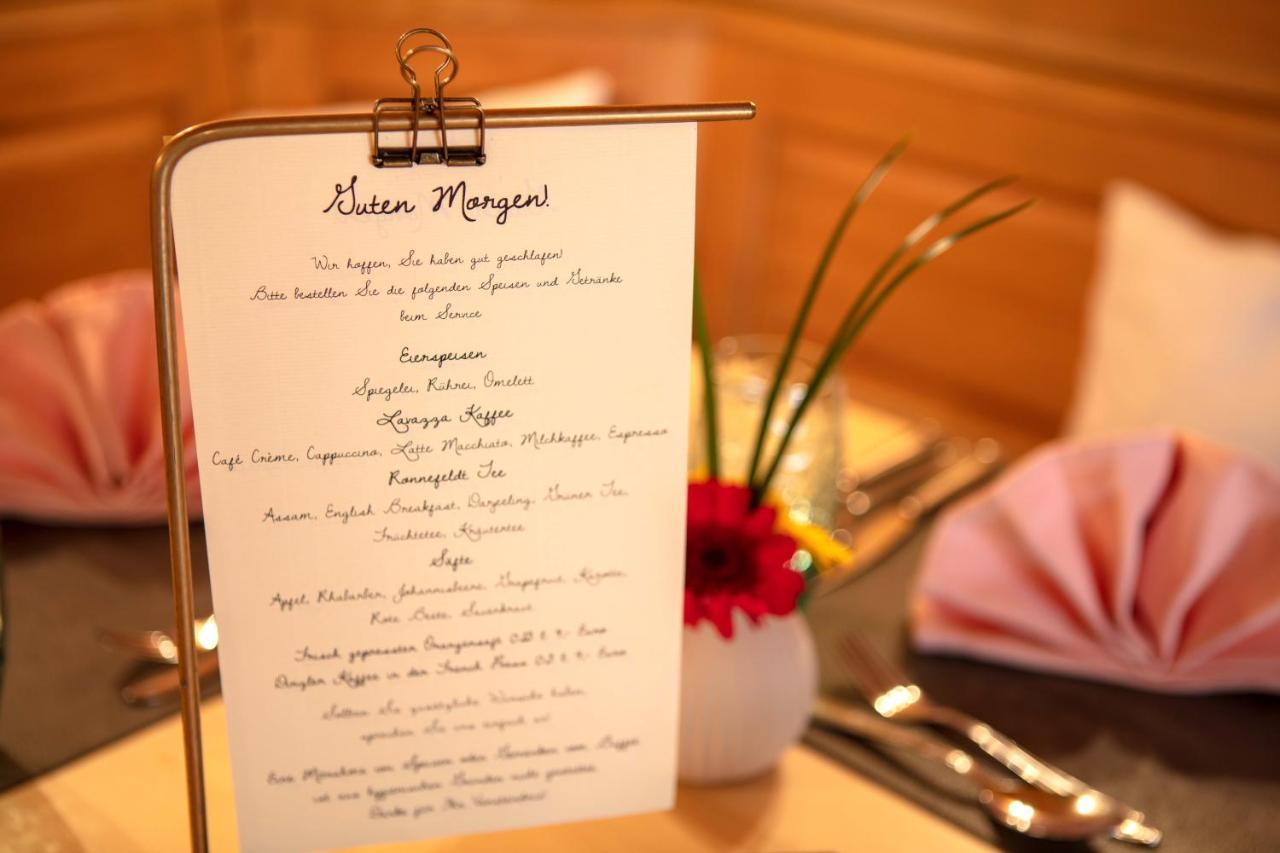 Guten Morgen!
Wir hoffen, Sie haben gut geschlafen!
Bitte bestellen Sie die folgenden Speisen und Getränke
beim Service
Eierspeisen
Spiegelei, Rührei, Omelett
Lavazza Kaffee
Café Crème, Cappuccino, Latte Macchiato, Milchkaffee, Espresso
Ronnefeldt Tee
Assam, English Breakfast, Darjeeling, Grüner Tee,
Früchtetee, Kräutertee
Säfte
Apfel, Rhabarber, Johannisbeere, Grapefruit, Karotte,
Rote Beete, Sauerkraut
Frisch gepresster Orangensaft Euro
Kaffee in der French Press Euro
Sollten Sie zusätzliche Wünsche haben,
sprechen Sie uns einfach an!
Eine Mitnahme von Speisen oder Getränken vom Buffet
ist aus hygienischen Gründen nicht gestattet.
Danke für Ihr Verständnis!